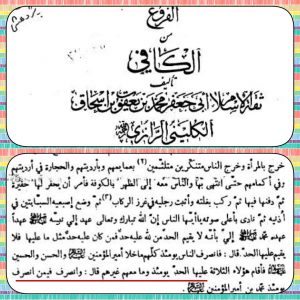 الفروع
من
الكافي
تأليف
ثقة الإسلام أبي جعفر محمد بن يعقوب بن إسحاق
الكليني الرازي
خرج بالمرأة وخرج الناس متنكرين متلثمين (٦) بعمايمهم وبأرديتهم والحجارة في أرديتهم
وفي أكمامهم حتى انتهى بها والناس معه إلى الظهر بالكوفة فأمر أن يحفر لها حفيرة
ثم دفنها فيها ثم ركب بغلته وأثبت رجله في غرز الركاب ثم وضع إصبعيه السبابتين في
أذنيه ثم نادى بأعلى صوته يا أيها الناس إن الله تبارك وتعالى عهد إلى نبيه عهدا
عهده محمد إلي بأنه لا يقيم الحد من لله عليه حد فمن كان عليه حد مثل ما عليها فلا
يقيم عليها الحد قال: فانصرف الناس يومئذ كلهم ما خلا أمير المؤمنين والحسن والحسين
فأقام هؤلاء الثلاثة عليها الحد يومئذ وما معهم غيرهم قال: وانصرف فيمن انصرف
يومئذ محمد بن أمير المؤمنين